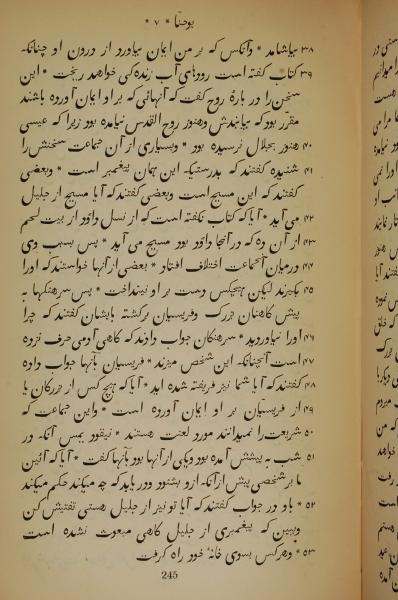 یوحنّا * ۷ *
۳۸ بیاشامد * وآنکس که بر من ایمان بیاورد از درون او چنانکه
۳۹ کتاب گفته است رودهای آب زنده کی خواهد ریخت * این
سخن را در بارهٔ روح گفت که آنهائی که بر او ایمان آورده باشند
مقرر بود که بیابندش وهنوز روح القدس نیامده بود زیرا که عیسی
۴۰ هنوز بجلال نرسیده بود * وبسیاری از آن جماعت سخنش را
۴۱ شنیده گفتند که بدرستیکه این همان پیغمبر است * وبعضی
گفتند که این مسیح است وبعضی گفتند که آیا مسیح از جلیل
۴۲ می آید * آیا که کتاب نگفته است که از نسل داؤد از بیت لحم
۴۳ از آن ده که در آنجا داؤد بود مسیح می آید * پس بسبب وی
۴۴ در میان آنجماعت اختلاف افتاد * بعضی از آنها خواستند که اورا
۴۵ بگیرند لیکن هیچکس دست بر او نینداخت * پس سرهنگها به
پیش کاهنان بزرک وفریسیان برگشته بایشان گفتند که چرا
۴۶ اورا نیاوردید * سرهنکان جواب دادند که کاهی آدمی حرف نزده
۴۷ است آنچنانکه این شخص میزند * فریسیان بآنها جواب داده
۴۸ گفتند که آیا شما نیز فریفته شده اید * آیا که هیچ کس از بزرکان یا
۴۹ از فریسیان بر او ایمان آورده است * واین جماعت که
۵۰ شریعت را نمیدانند مورد لعنت هستند * نیقودیمس آنکه در
۵۱ شب به پیشش آمده بود ویکی از آنها بود بآنها گفت * آیا که آئین
ما بر شخصی پیش از آنکه ازو بشنود ودریابد که چه میکند حکم میکند
۵۲ * باو در جواب گفتند که آیا تو نیز از جلیل هستی تفتیش کن
وببین که پیغمبری از جلیل کاهی مبعوث نشده است
۵۳ * وهرکس بسوی خانهٔ خود راه گرفت
245